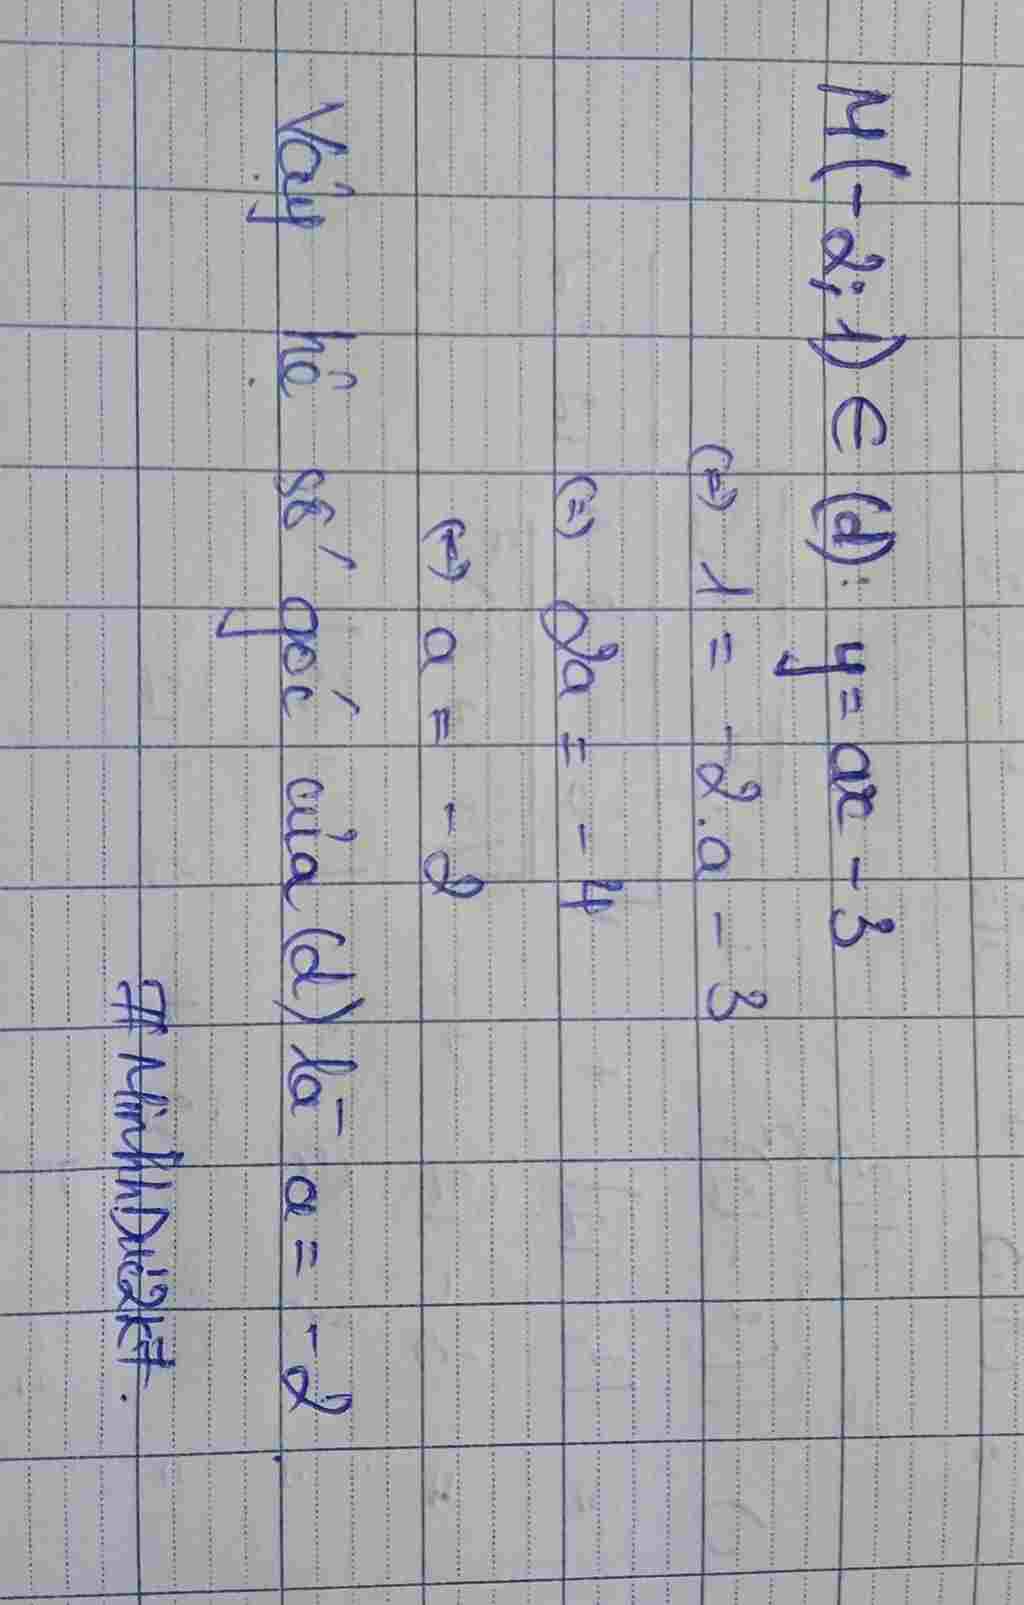 M(-2;1) ∈ (d): y = ax - 3
(=) 1 = -2.a - 3
(=) 2a = -4
(=) a = -2
Vậy hệ số góc của (d) là a = -2
#MinhDuc2k7.